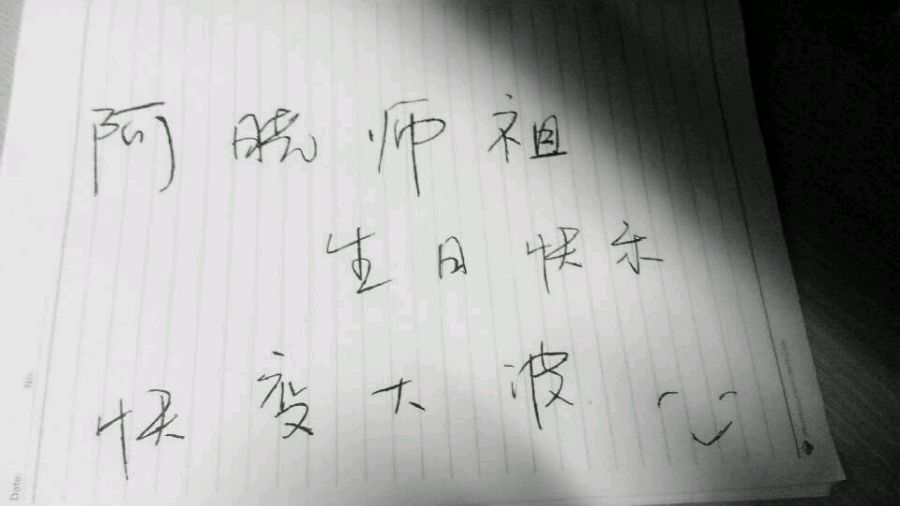 阿晓师祖
生日快乐
快变大波
No.
Date: